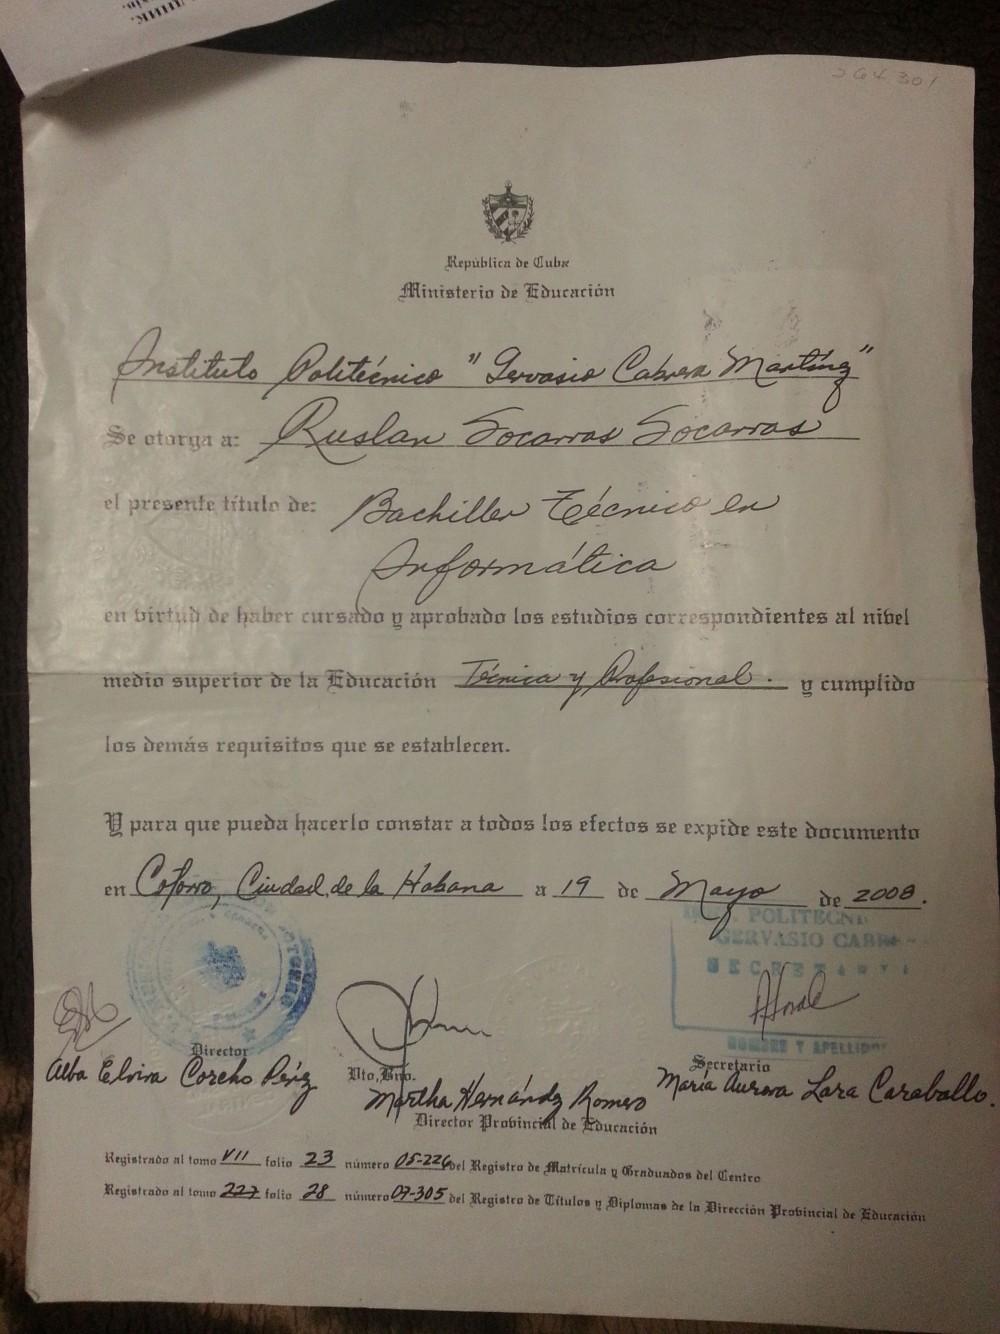 264.301
República de Cuba
Ministerio de Educación
Instituto Politécnico "Gervasio Cabrera Martínez"
Se otorga a: Ruslan Socarras Socarras
el presente título de: Bachiller Técnico en
Informática
en virtud de haber cursado y aprobado los estudios correspondientes al nivel
medio superior de la Educación Técnica y Profesional. y cumplido
los demás requisitos que se establecen.
Y para que pueda hacerlo constar a todos los efectos se expide este documento
en Cotorro, Ciudad de la Habana a 19 de Mayo de 2008.
POLITECNI
GERVASIO CABR
SECRETARIA
NOMBRE Y APELLIDO
Director
Alba Elvira Corcho Pérez
Vto, Bno.
Martha Hernández Romero
Director Provincial de Educación
Secretario
María Aurora Lara Caraballo.
Registrado al tomo VII folio 23 número 05-226 del Registro de Matrícula y Graduados del Centro
Registrado al tomo 227 folio 28 número 07-305 del Registro de Títulos y Diplomas de la Dirección Provincial de Educación